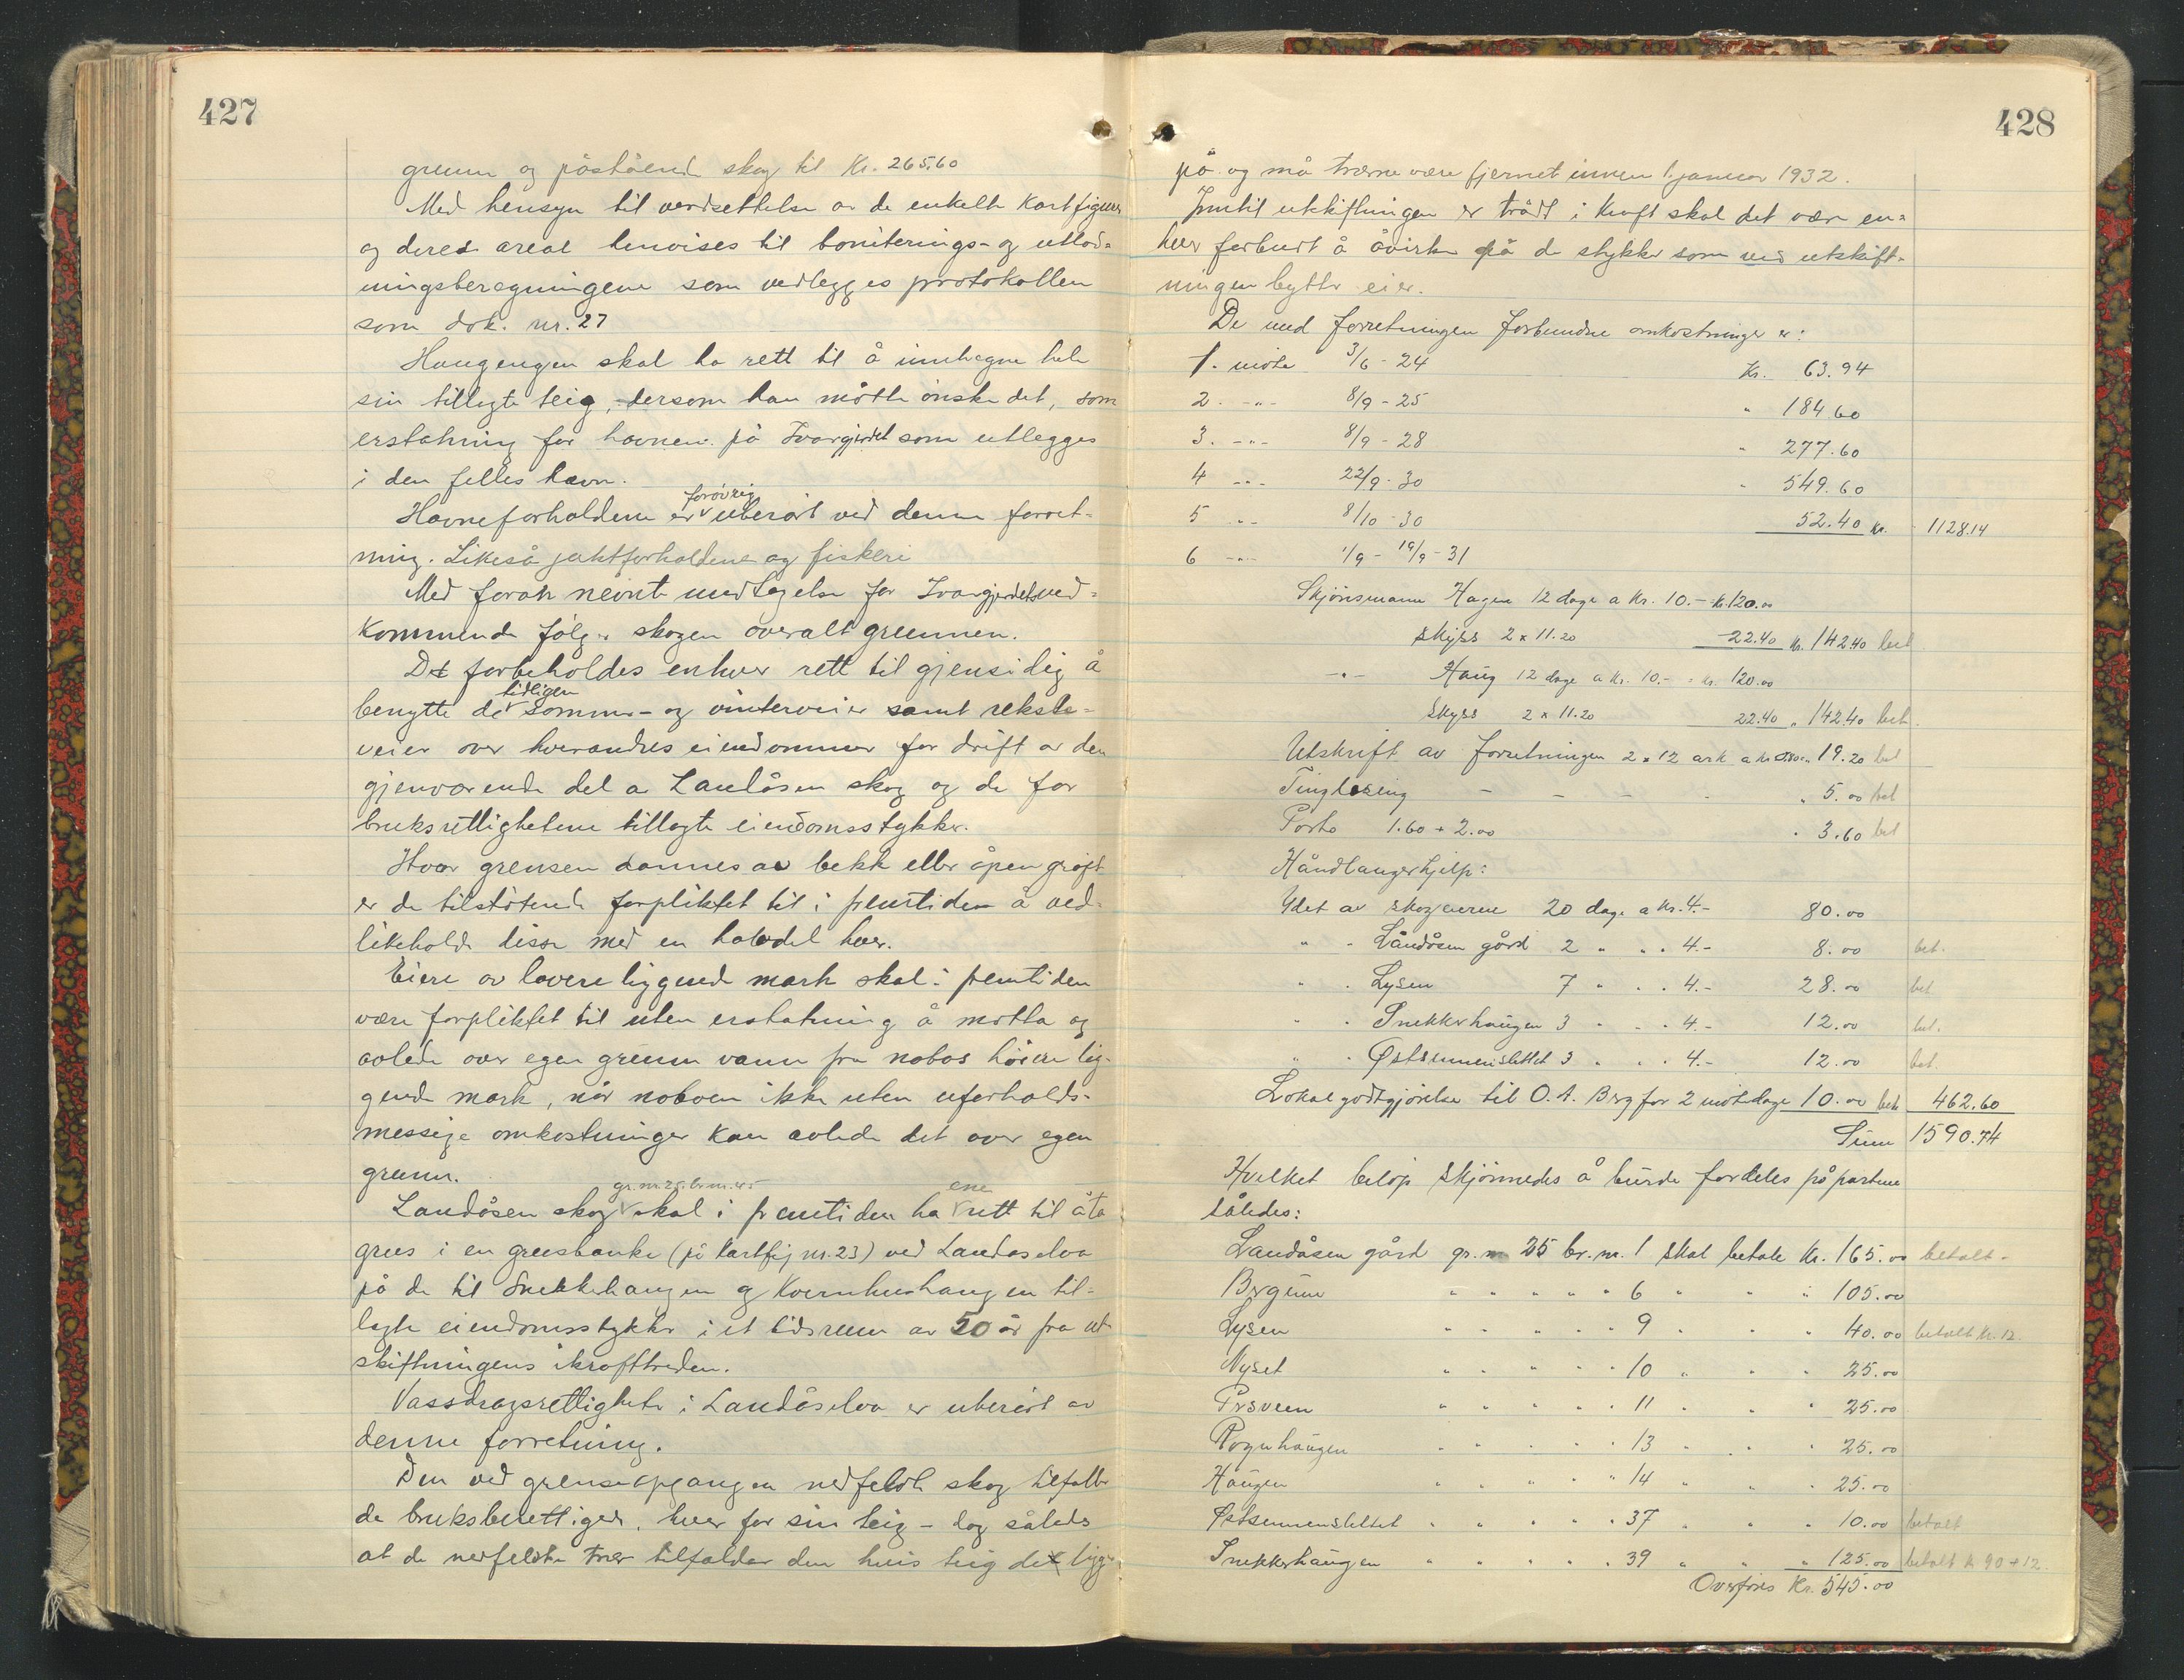 427
grunn og påstående skog til Kr. 265.60
Med hensyn til verdsettelse av de enkelte kartfigurer
og deres areal henvises til boniterings- og utlod=
ningsberegningene som vedlegges protokollen
som dok. nr. 27
Haugengen skal ha rett til å innhegne hele
sin tillagte teig, dersom han måtte ønske det, som
erstatning for havnen på Ivargjerdet som utlegges
i den felles havn.
Havneforholdene er forøvrig uberørt ved denne forret-
ning. Likeså jaktforholdene og fiskeri
Med foran nevnte undtagelse for Ivargjerdets ved=
kommende følger skogen overalt grunnen.
Det forbeholdes enhver rett til gjensidig å
benytte de tidligere sommer- og vinterveier samt rekste=
veier over hverandres eiendommer for drift av den
gjenværende del av Landåsen skog og de for
bruksrettighetene tillagte eiendomsstykker.
Hvor grensen dannes av bekk eller åpen grøft
er de tilstøtende forpliktet til i fremtiden å ved-
likeholde disse med en halvdel hver.
Eiere av lavere liggende mark skal i fremtiden
være forpliktet til uten erstatning å motta og
avlede over egen grunn vann fra nabos høiere lig-
gende mark, når naboen ikke uten uforholds-
messige omkostninger kan avlede det over egen
grunn.
Landåsen skog gr.nr. 25. br.nr. 45 skal i fremtiden ha ene rett til å ta
grus i en grusbanke (på kartfig nr. 23) ved Landåselva
på de til Snekkerhaugen og Kvernhushaugen til-
lagte eiendomsstykker i et tidsrum av 50 år fra ut-
skiftningens ikrafttreden.
Vassdragsrettigheter i Landåselva er uberørt av
denne forretning.
Den ved grenseopgangen nedfelte skog tilfaller
de bruksberettigede, hver for sin teig - dog således
at de nedfelte trær tilfaller den hvis teig de ligger
428
på og må trærne være fjernet innen 1. januar 1932.
Inntil utskiftningen er trådt i kraft skal det være en=
hver forbudt å avirke på de stykker som ved utskift-
ningen bytter eier.
De med forretningen forbundne omkostninger er:
1. møte 3/6 - 24 Kr. 63.94
2. -"- 8/9 - 25 " 184 60
3. -"- 8/9 - 28 " 277.60
4 -"- 22/9 - 30 " 549.60
5 -"- 8/10 - 30 52.40 Kr. 1128.14
6 -"- 1/9 - 19/9 - 31
Skjønsmann Hagen 12 dage a Kr. 10.- Kr. 120.00
Skyss 2 x 11.20 22.40 Kr. 142.40 bet
-"- Haug 12 dage a Kr. 10.- = Kr. 120.00
Skyss 2 x 11.20 22.40 " 142.40 bet.
Utskrift av forretningen 2 x 12 ark a Kr 0.80 = " 19.20 bet
Tinglesing - - - - " 5.00 bet
Porto 1.60 + 2.00 " 3.60 bet
Håndlangerhjelp:
Ydet av skogeierne 20 dage a Kr. 4.- 80.00
" " Landåsen gård 2 " " " 4.- 8.00 bet.
" " Lysen 7 " " " 4.- 28.00 bet
" " Snekkerhaugen 3 " " " 4.- 12.00 bet.
" " Østsennenslettet 3 " " " 4.- 12.00 bet.
Lokalgodtgjørelse til O. A. Berg for 2 møtedage 10.00 bet 462.60
Sum 1590.74
Hvilket beløp skjønnedes å burde fordeles på partene
således:
Landåsen gård gr. nr 25 br. nr. 1 skal betale Kr. 165.00 betalt.
Bergum " " " " " 6 " " " 105.00
Lysen " " " " " 9 " " " 40.00 betalt Kr. 12.
Nyset " " " " " 10 " " " 25.00
Prsveen " " " " " 11 " " " 25.00
Rognhaugen " " " " " 13 " " " 25.00
Haugen " " " " " 14 " " " 25.00
Østsennenslettet " " " " " 37 " " " 10.00 betalt
Snekkerhaugen " " " " " 39 " " " 125.00 betalt k 90 + 12.
Overføres Kr. 545.00